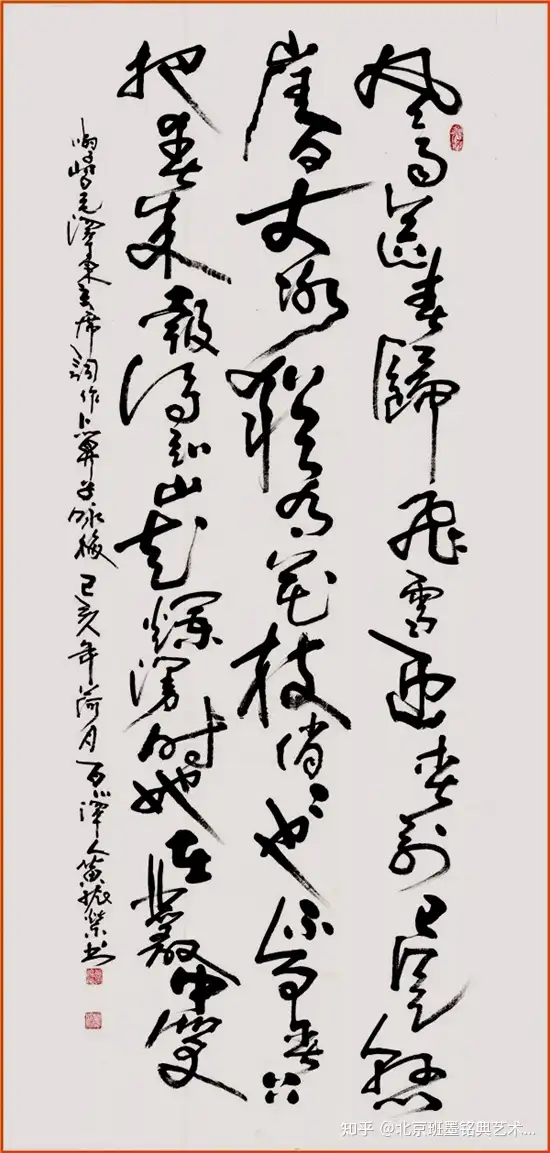 風雨送春歸飛雪迎春到已是懸
崖百丈冰猶有花枝俏〻也不爭春只
把春來報待到山花爛漫時她在叢中笑
毛澤東主席詞作卜算子咏梅 己亥年荷月 人黄振榮书
知乎 @北京班墨铭典艺术...